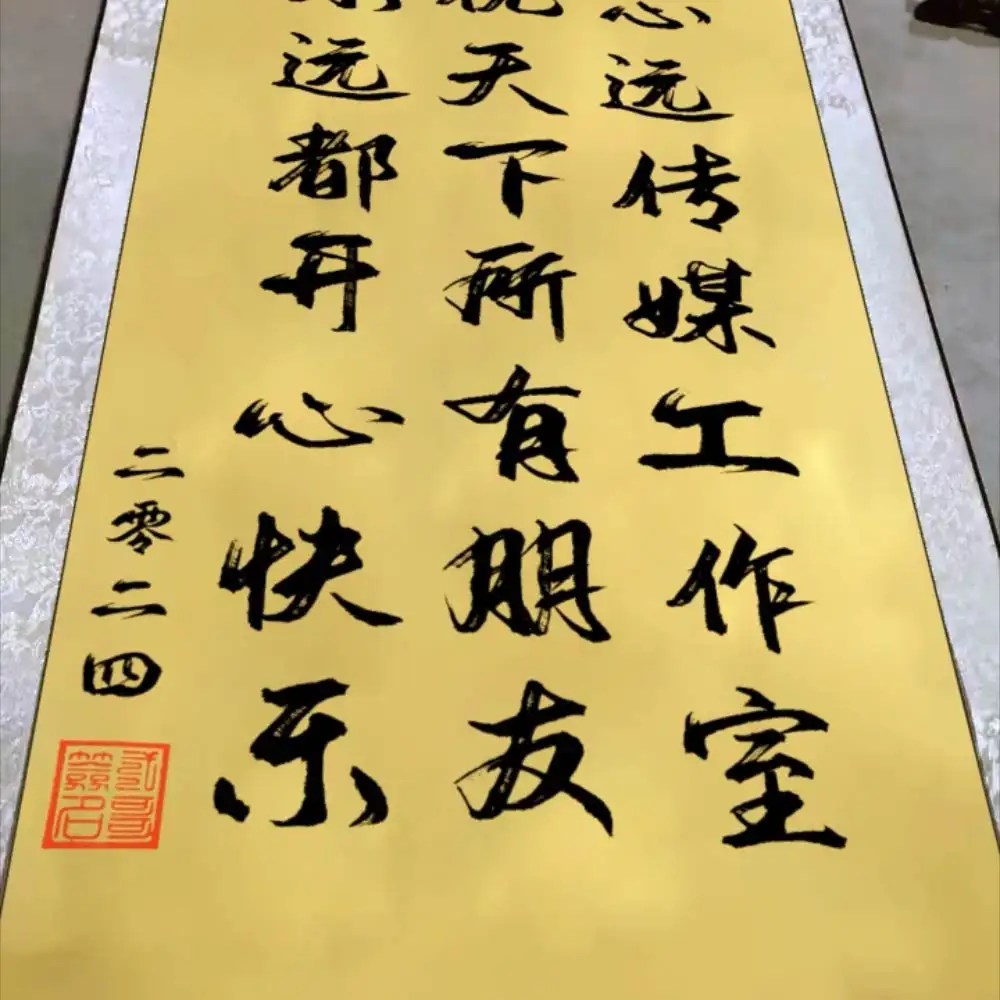 远传媒工作室
天下所有朋友
远都开心快乐
二零二四